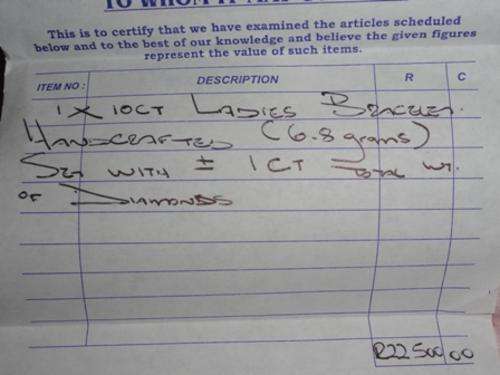 This is to certify that we have examined the articles scheduled
below and to the best of our knowledge and believe the given figures
represent the value of such items.
ITEM NO : DESCRIPTION R C
1 X 10CT LADIES BRACELET.
HANDCRAFTED (6.8 grams)
SET WITH ± 1 CT TOTAL WT.
OF DIAMONDS
R22500 00